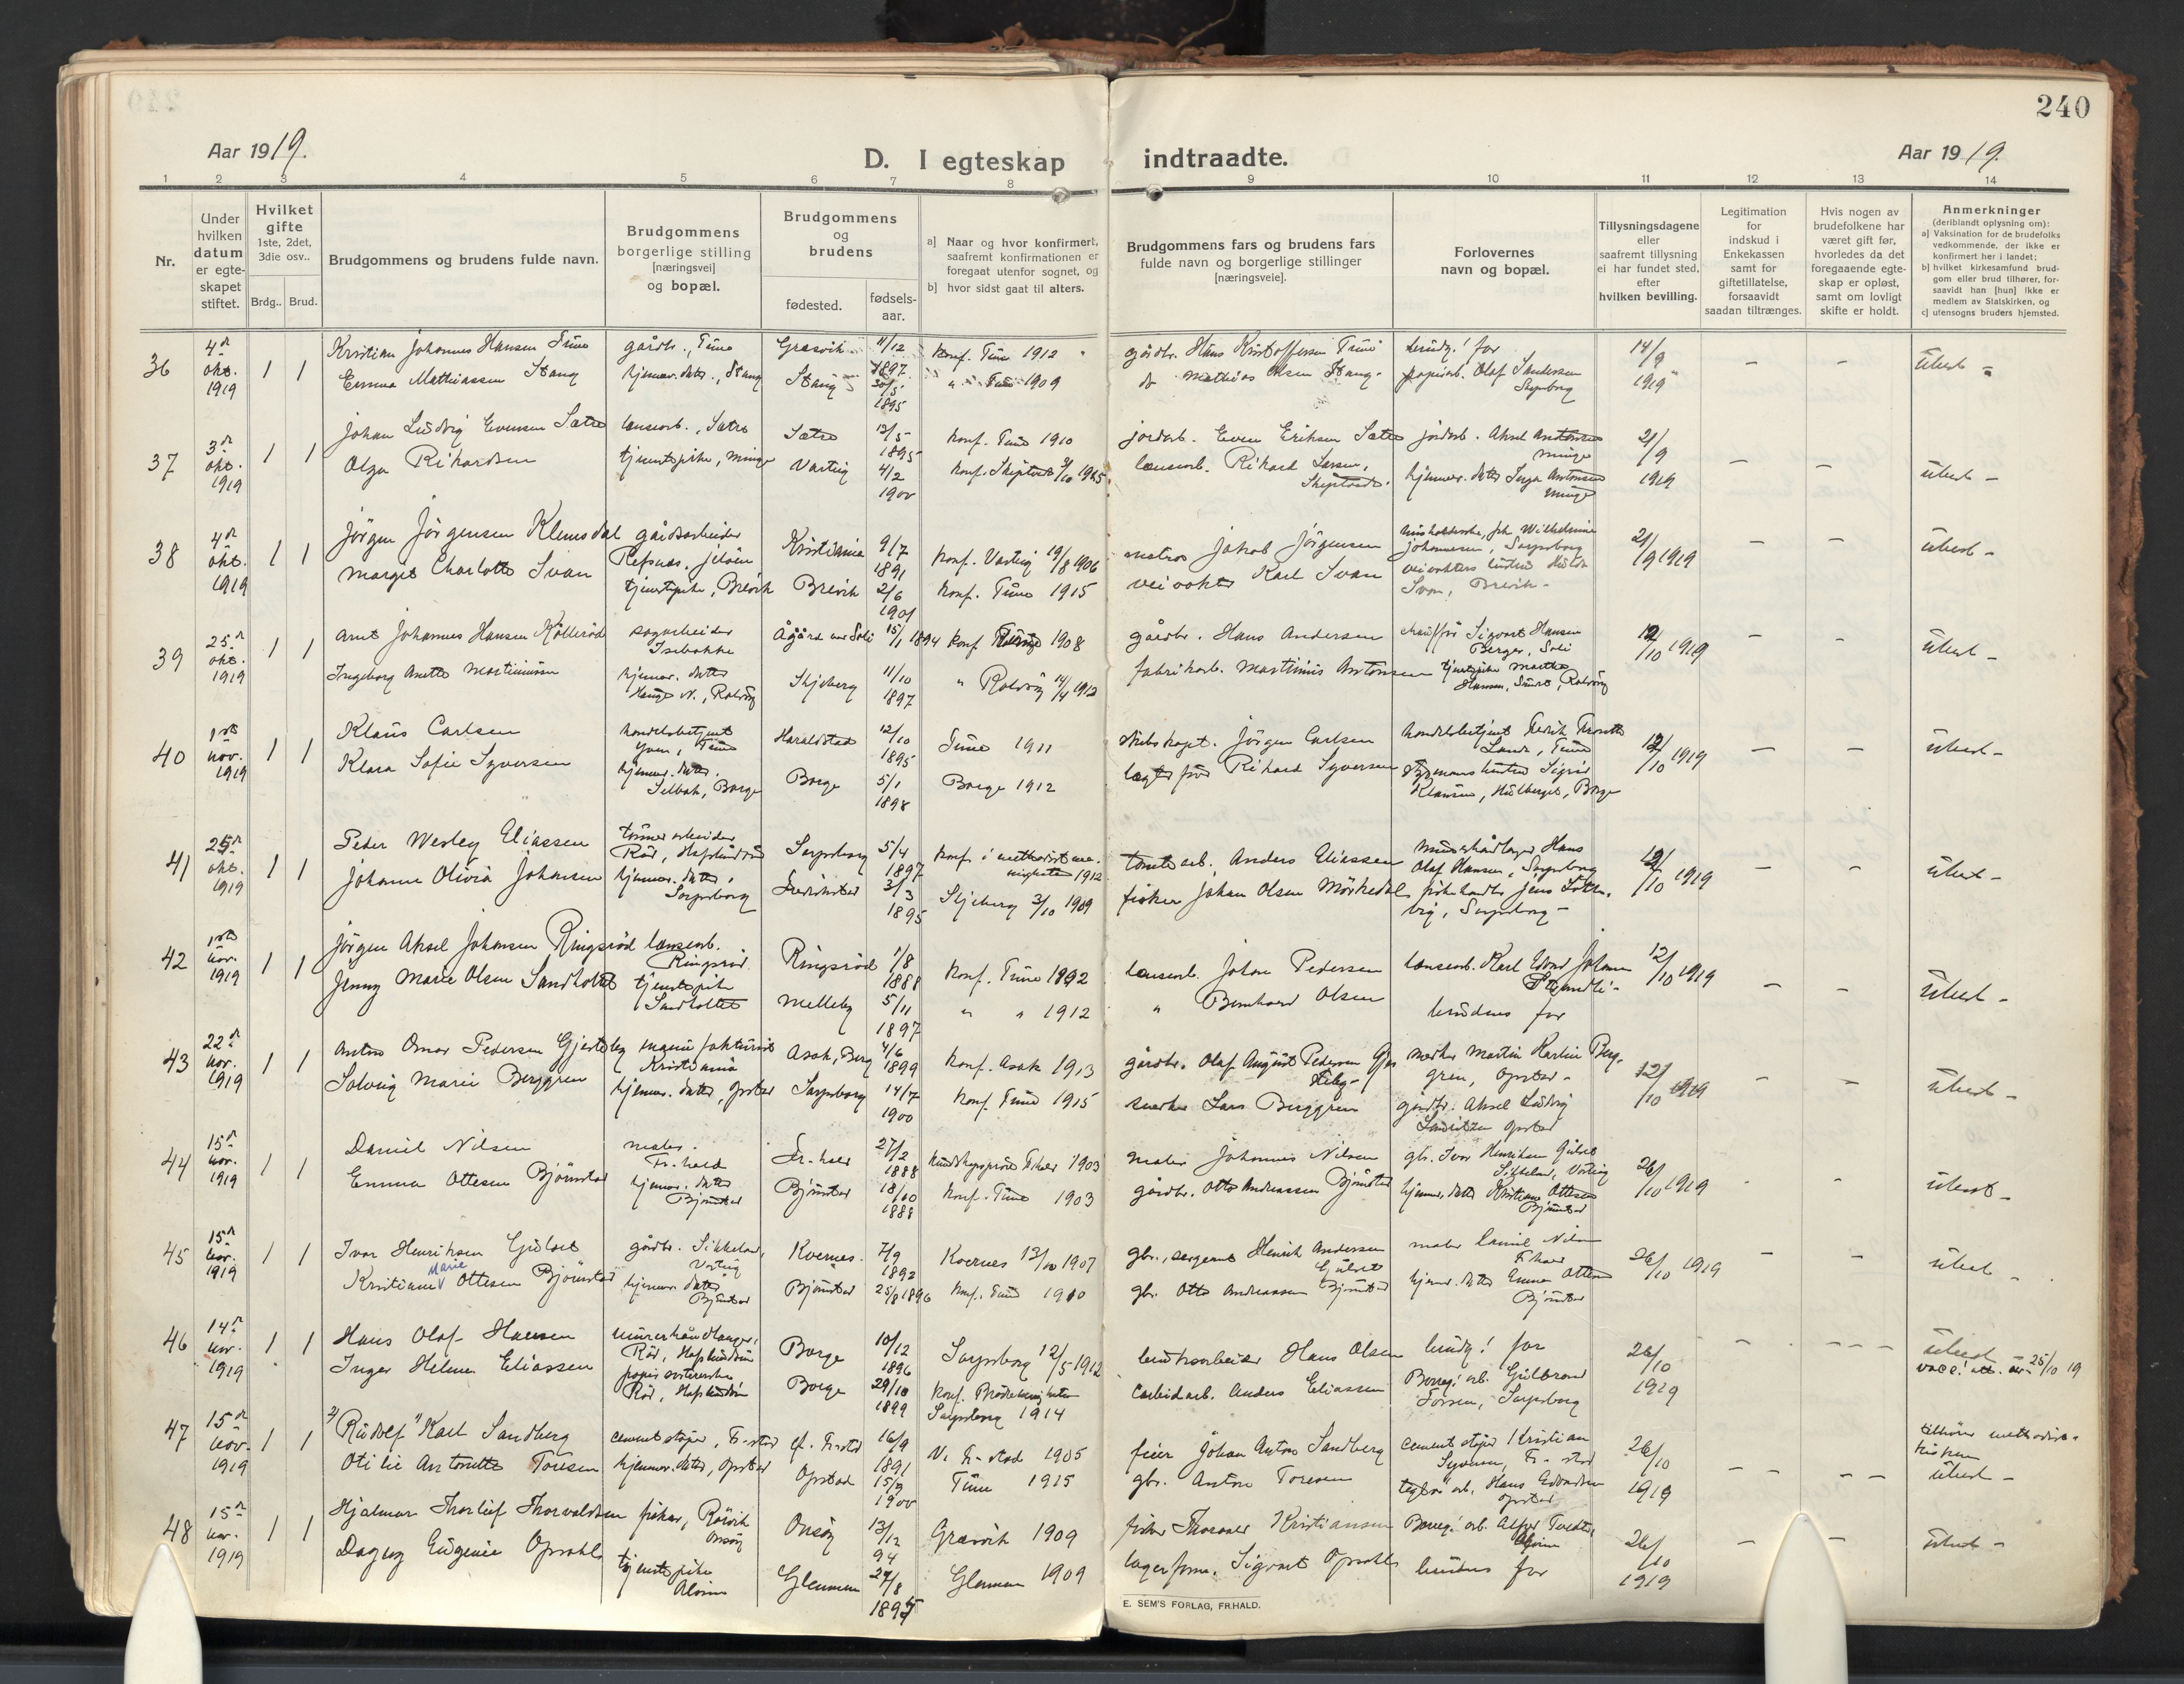 240
Aar 1919.
D. I egteskap indtraadte.
Aar 1919.
1 2 3 4 5 6 7 8 9 10 11 12 13 14
Nr.
Under hvilken datum er egteskapet stiftet.
Hvilket gifte 1ste, 2det, 3die osv..
Brdg.. Brud.
Brudgommens og brudens fulde navn.
Brudgommens borgerlige stilling [næringsvei] og bopæl.
Brudgommens og brudens
fødested. fødsels-aar.
a] Naar og hvor konfirmert, saafremt konfirmationen er foregaat utenfor sognet, og
b] hvor sidst gaat til alters.
Brudgommens fars og brudens fars fulde navn og borgerlige stillinger [næringsveie].
Forlovernes navn og bopæl.
Tillysningsdagene eller saafremt tillysning ei har fundet sted, efter hvilken bevilling.
Legitimation for indskud i Enkekassen samt for giftetillatelse, forsaavidt saadan tiltrænges.
Hvis nogen av brudefolkene har været gift før, hvorledes da det foregaaende egteskap er opløst, samt om lovligt skifte er holdt.
Anmerkninger
(deriblandt oplysning om):
a] Vaksination for de brudefolks vedkommende, der ikke er konfirmert her i landet;
b] hvilket kirkesamfund brudgom eller brud tilhører, forsaavidt han [hun] ikke er medlem av Statskirken, og
c] utensogns bruders hjemsted.
36 4de okt. 1919 1 1 Kristian Johannes Hansen Tune gårdbr., Tune Græsvik 11/12 1897 konf. Tune 1912 gårdbr. Hans Kristoffersen Tune brudg! far 14/9 1919 – – ubesl –
Emma Mathiassen Stang hjemmev. datter, Stang Stang 30/5 1895 " Tune 1909 do Mathias Olsen Stang papirarb. Olaf Sandersen
37 3de okt. 1919 1 1 Johan Ludvig Evensen Sætre lensearb., Sætre Sætre 13/5 1895 konf. Tune 1910 jordarb. Even Eriksen Sætre jordarb. Aksel Antonsen Minge 21/9 1919 – – ubesl –
Olga Rikardsen tjenestpike, Minge Varteig 4/2 1900 konf. 1915 lensearb. Rikard Larsen, hjemmev. datter Inga Antonsen Minge
38 4de okt. 1919 1 1 Jörgen Jörgensen Klemsdal gårdsarbeider Refsnæs, Jelöen Kristiania 9/7 1891 konf. Varteig 19/8 1906 matros Jakob Jörgensen Johannesen, Sarpsborg 21/9 1919 – – ubesl –
Margit Charlotte Svan tjenestpike, Brevik Brevik 2/6 1901 konf. Tune 1915 veivokter Karl Svan veivokters hustru Hulda Svan, Brevik –
39 25de okt. 1919 1 1 Arnt Johannes Hansen Köllerød sagarbeider Isebakke Ågård ver Soli 15/1 1894 konf 1908 gårdbr. Hans Andersen chauffør Sigvart Hansen Berger, Soli 12/10 1919 – – ubesl –
Ingeborg Anette Martiniussen hjemmev. datter Hauge N., Rolvsöy Skjeberg 11/10 1897 " Rolvsöy 14/4 1912 fabrikarb. Martinius Antonsen tjenestpike Marthe Hansen, Rolvsöy
40 1ste nov. 1919 1 1 Klaus Carlsen handelsbetjent Yven, Tune Haraldstad 12/10 1895 Tune 1911 skibskapt. Jörgen Carlsen handelsbetjent Fredrik Lande, Tune 12/10 1919 – – ubesl –
Klara Sofie Syversen hjemmev. datter, Selbak, Borge Borge 5/1 1898 Borge 1912 Rikard Syversen hustru Sigrid Klausen, Borge
41 25de okt. 1919 1 1 Peder Wesley Eliassen tömmerarbeider Röd, Hafslundsöen Sarpsborg 5/4 1897 konf. i methodistmenigheten 1912 tomtearb. Anders Eliassen murerhåndlanger Hans Olaf Hansen, Sarpsborg 12/10 1919 ubesl –
Johanne Olivia Johansen hjemmev. datter, Sarpsborg Fredrikstad 3/3 1895 Skjeberg 3/10 1909 fisker Johan Olsen Mörkedal fiskehandler Jens, Sarpsborg –
42 1ste nov. 1919 1 1 Jörgen Aksel Johansen Ringsröd lensearb. Ringsröd Ringsröd 1/8 1888 konf. Tune 1902 lensearb. Johan Pedersen lensearb. Karl Edvard Johansen 12/10 1919 – – ubesl –
Jenny Marie Olsen Sandholtet tjenestpike Sandholtet Melleby 5/11 1897 " " 1912 " Bernhard Olsen brudens far
43 22de nov. 1919 1 1 Anton Omar Pedersen Gjerteby manufakturist Kristiania Asak, Berg 4/6 1899 konf. Asak 1913 gårdbr. Olaf August Pedersen snekker Martin Berggren, Opstad – 12/10 1919 – – ubesl –
Solveig Marie Berggren hjemmev. datter, Opstad Sarpsborg 14/7 1900 konf. Tune 1915 snekker Lars Berggren gårdbr. Aksel Ludvig Opstad
44 15de nov. 1919 1 1 Daniel Nilsen maler. Fr.-hald Fr.-hald 27/2 1888 kundskapspröve F.hald 1903 maler Johannes Nilsen gbr. Ivar Henriksen Gulset Sikkeland, Varteig 26/10 1919 – ubesl –
Emma Ottesen Bjørnstad hjemmev. datter Bjørnstad Bjørnstad 18/10 1888 konf. Tune 1903 gårdbr. Otto Andreassen Bjørnstad hjemmev. datter Kristiane Ottesen Bjørnstad
45 15de nov. 1919 1 1 Ivar Henriksen Gulset gårdbr. Sikkeland, Varteig Kvernes 7/9 1892 Kvernes 13/10 1907 gbr., sergeant Henrik Andersen Gulset maler Daniel Nilsen F.hald 26/10 1919 – – ubesl –
Kristiane Marie Ottesen Bjørnstad hjemmev. datter Bjørnstad Bjørnstad 25/8 1896 konf. Tune 1910 gbr. Otto Andreassen Bjørnstad hjemmev. datter Emma Ottesen Bjørnstad
46 14de nov. 1919 1 1 Hans Olaf Hansen murerhåndlanger, Röd, Hafslundsöen Borge 10/12 1896 Sarpsborg 12/5 1912 bruksarbeider Hans Olsen brudg! far 26/10 1919 – – – – ubesl vacc! att. av 25/10 19
Inger Helene Eliassen papirsortererske Röd, Hafslundsöen Borge 29/10 1899 konf. Brödremenigheten Sarpsborg 1914 carbidarb. Anders Eliassen Borreg! arb. Gulbrand, Sarpsborg
47 15de nov. 1919 1 1 2) Rudolf 1) Karl Sandberg cementstøper, Fr-stad Gl. Fr-stad 16/9 1891 V. Fr-stad 1905 feier Johan Anton Sandberg cementstøper Kristian, Fr-stad 26/10 1919 – – – – tilhører methodistkirken ubesl –
Otilie Antonette Toresen hjemmev. datter, Opstad Opstad 15/9 1900 Tune 1915 gbr. Anton Toresen teglv. arb. Hans Opstad
48 15de nov. 1919 1 1 Hjalmar Thorleif Thorvaldsen fisker, Rörvik Onsöy Onsöy 13/12 94 Græsvik 1909 fisker Thorvald Kristiansen Borreg! arb. Alfred Alvim 26/10 1919 – – ubesl –
Dagny Eugenie Opsahl tjenestpike Alvim Glemmen 27/8 1895 Glemmen 1909 lagerform. Sigvart Opsahl brudens far
E. SEM'S FORLAG, FR.HALD.